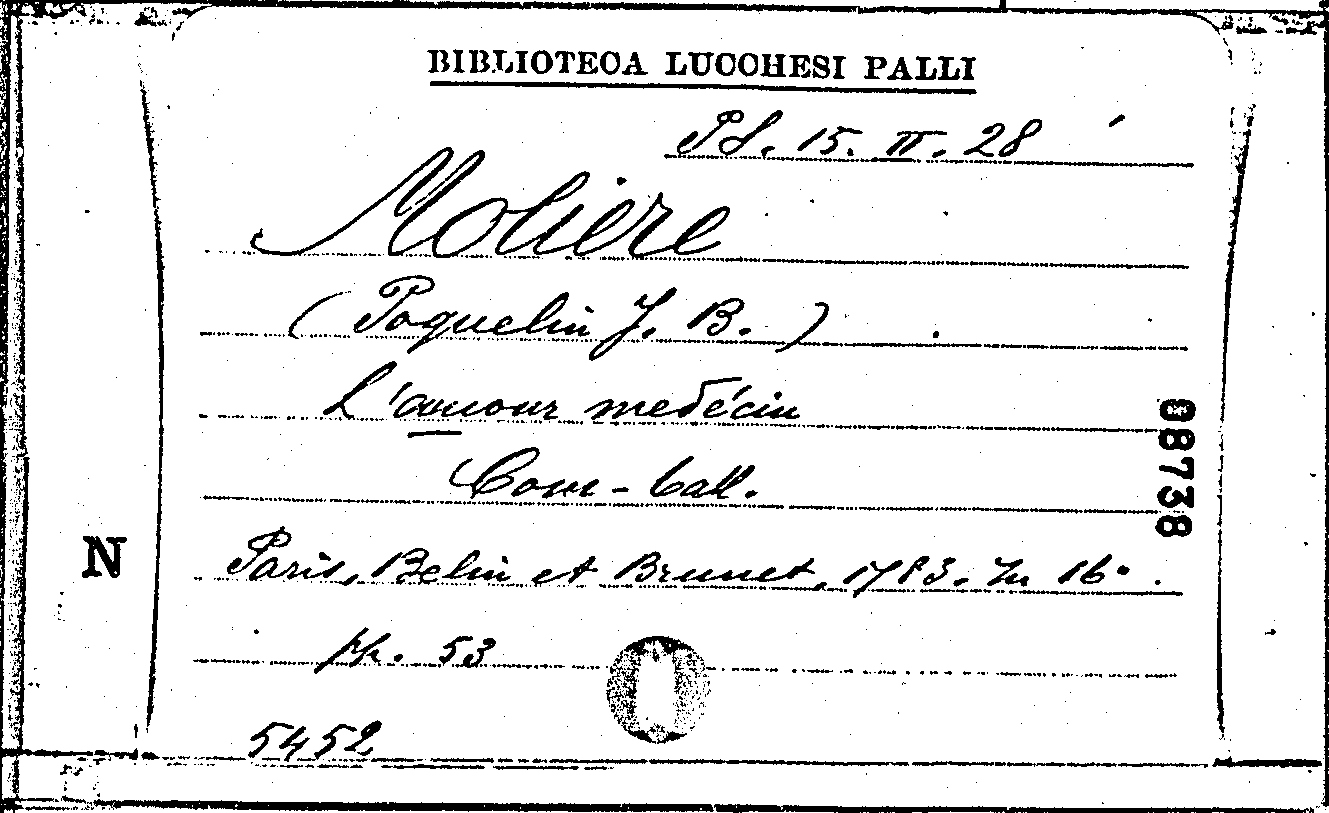 BIBLIOTECA LUCCHESI PALLI
Pl. 15. II. 28
Moliere
(Poquelin J. B.)
L'amour medécin
Com-ball.
Paris, Belin et Brunet, 1783. In 16°.
pp. 53
5452
N
08738